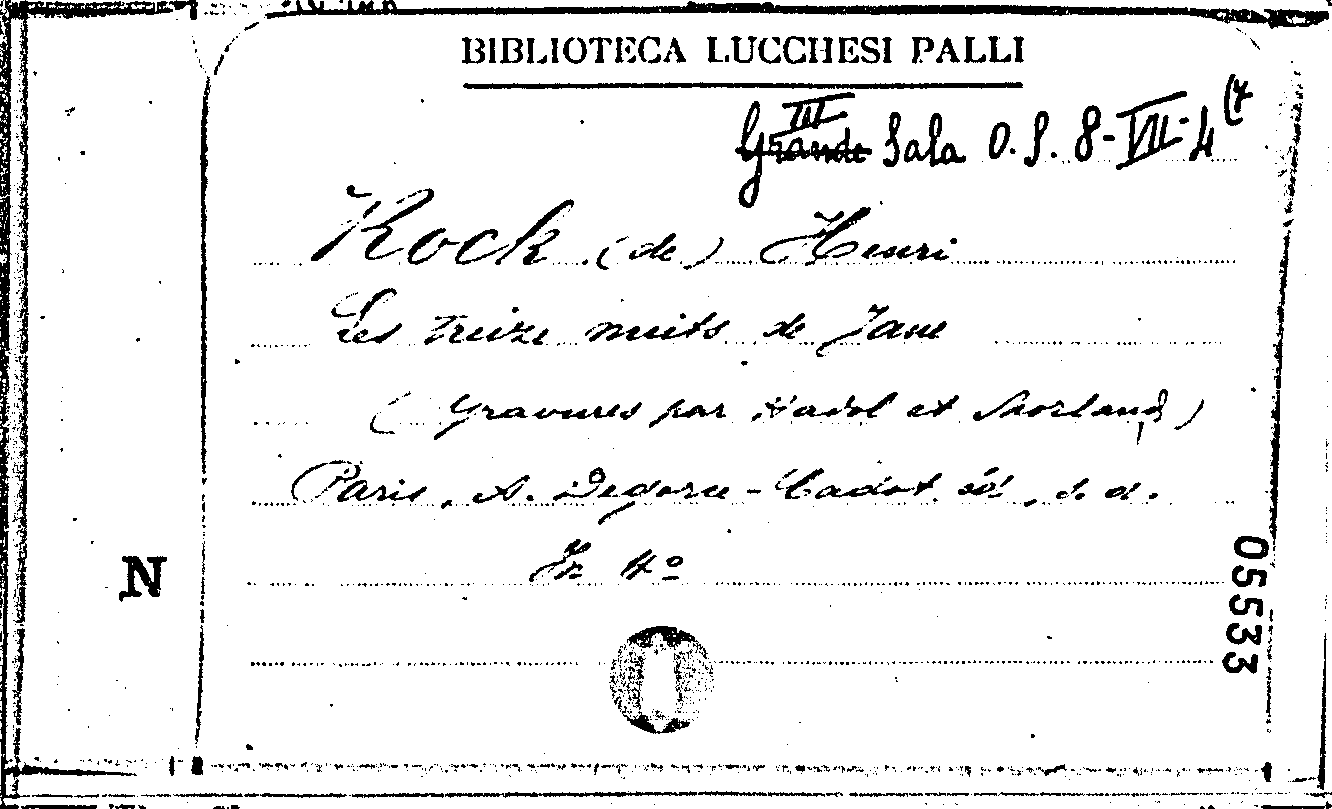 BIBLIOTECA LUCCHESI PALLI
III
Grande Sala O. S. 8-VII-4 (7
Kock (de) Henri
Les treize nuits de Jane
(Gravures par Hadol et Morland)
Paris, A. Degorce-Cadot éd., s. d.
In 4º
N
05533